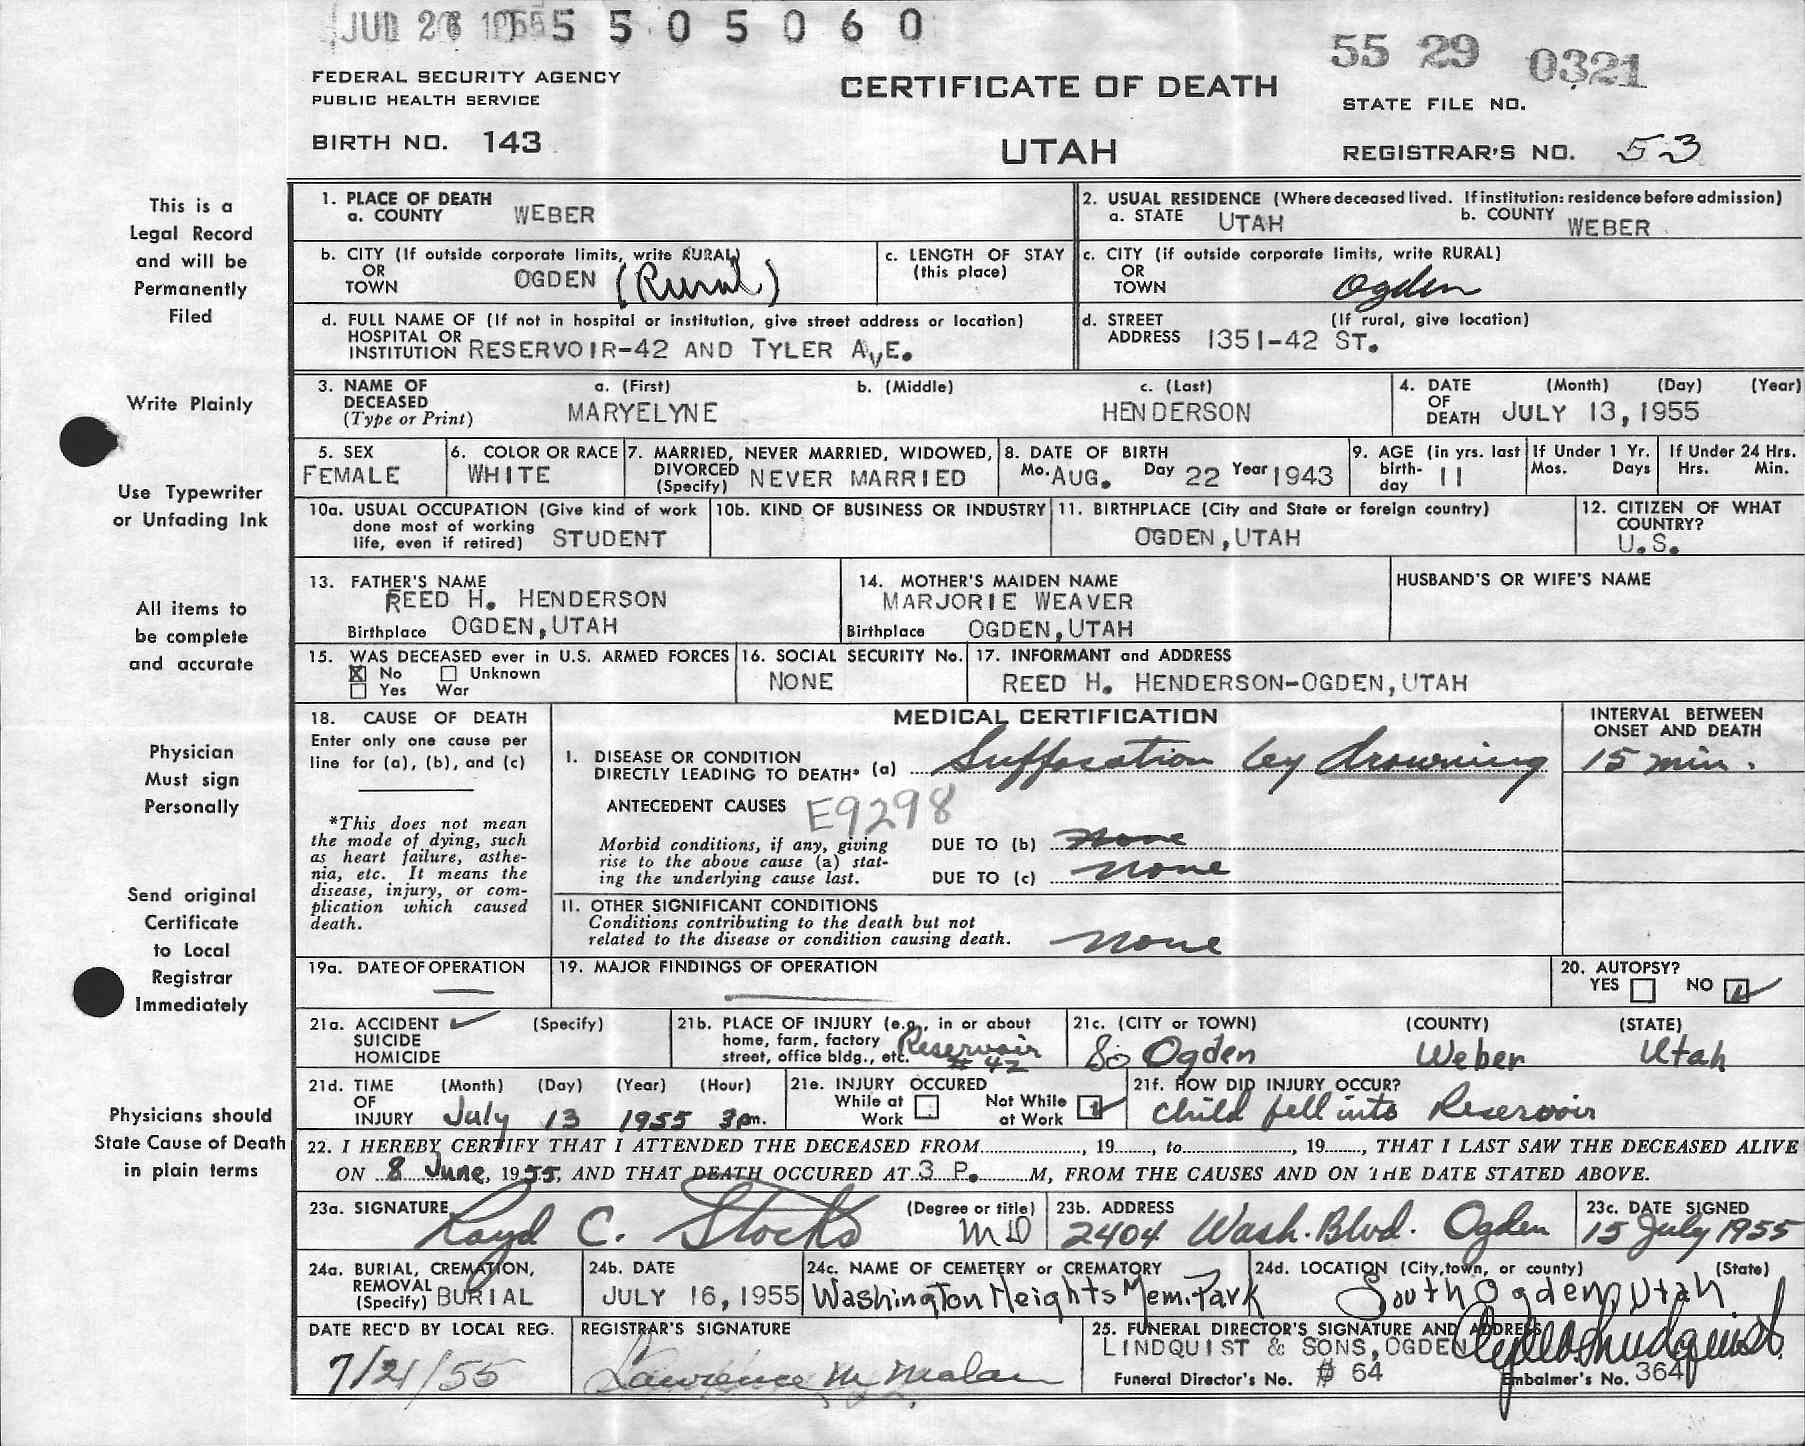 JUL 26 1955 5 5 0 5 0 6 0
55 29 0321
FEDERAL SECURITY AGENCY
PUBLIC HEALTH SERVICE
CERTIFICATE OF DEATH
STATE FILE NO.
BIRTH NO. 143
UTAH
REGISTRAR'S NO. 53
This is a
Legal Record
and will be
Permanently
Filed
Write Plainly
Use Typewriter
or Unfading Ink
All items to
be complete
and accurate
Physician
Must sign
Personally
Send original
Certificate
to Local
Registrar
Immediately
Physicians should
State Cause of Death
in plain terms
1. PLACE OF DEATH
a. COUNTY WEBER
2. USUAL RESIDENCE (Where deceased lived. If institution: residence before admission)
a. STATE UTAH b. COUNTY WEBER
b. CITY (If outside corporate limits, write RURAL)
OR
TOWN OGDEN (Rural)
c. LENGTH OF STAY
(this place)
c. CITY (if outside corporate limits, write RURAL)
OR
TOWN Ogden
d. FULL NAME OF (If not in hospital or institution, give street address or location)
HOSPITAL OR
INSTITUTION RESERVOIR-42 AND TYLER AVE.
d. STREET (If rural, give location)
ADDRESS 1351-42 ST.
3. NAME OF
DECEASED
(Type or Print)
a. (First) b. (Middle) c. (Last)
MARYELYNE HENDERSON
4. DATE (Month) (Day) (Year)
OF
DEATH JULY 13, 1955
5. SEX
FEMALE
6. COLOR OR RACE
WHITE
7. MARRIED, NEVER MARRIED, WIDOWED,
DIVORCED
(Specify) NEVER MARRIED
8. DATE OF BIRTH
Mo. AUG. Day 22 Year 1943
9. AGE (in yrs. last
birth-
day 11
If Under 1 Yr.
Mos. Days
If Under 24 Hrs.
Hrs. Min.
10a. USUAL OCCUPATION (Give kind of work
done most of working
life, even if retired) STUDENT
10b. KIND OF BUSINESS OR INDUSTRY
11. BIRTHPLACE (City and State or foreign country)
OGDEN, UTAH
12. CITIZEN OF WHAT
COUNTRY?
U.S.
13. FATHER'S NAME
REED H. HENDERSON
Birthplace OGDEN, UTAH
14. MOTHER'S MAIDEN NAME
MARJORIE WEAVER
Birthplace OGDEN, UTAH
HUSBAND'S OR WIFE'S NAME
15. WAS DECEASED ever in U.S. ARMED FORCES
No Unknown
Yes War
16. SOCIAL SECURITY No.
NONE
17. INFORMANT and ADDRESS
REED H. HENDERSON-OGDEN, UTAH
18. CAUSE OF DEATH
Enter only one cause per
line for (a), (b), and (c)
*This does not mean
the mode of dying, such
as heart failure, asthe-
nia, etc. It means the
disease, injury, or com-
plication which caused
death.
MEDICAL CERTIFICATION
INTERVAL BETWEEN
ONSET AND DEATH
I. DISEASE OR CONDITION
DIRECTLY LEADING TO DEATH* (a) Suffocation by drowning 15 min.
ANTECEDENT CAUSES E9298
Morbid conditions, if any, giving
rise to the above cause (a) stat-
ing the underlying cause last.
DUE TO (b) none
DUE TO (c) none
II. OTHER SIGNIFICANT CONDITIONS
Conditions contributing to the death but not
related to the disease or condition causing death. none
19a. DATE OF OPERATION
19. MAJOR FINDINGS OF OPERATION
20. AUTOPSY?
YES NO
21a. ACCIDENT ✓ (Specify)
SUICIDE
HOMICIDE
21b. PLACE OF INJURY (e.g., in or about
home, farm, factory
street, office bldg., etc. Reservoir
# 42
21c. (CITY or TOWN) (COUNTY) (STATE)
So Ogden Weber Utah
21d. TIME (Month) (Day) (Year) (Hour)
OF
INJURY July 13 1955 3pm.
21e. INJURY OCCURED
While at Work
Not While at Work
21f. HOW DID INJURY OCCUR?
Child fell into Reservoir
22. I HEREBY CERTIFY THAT I ATTENDED THE DECEASED FROM, 19, to, 19, THAT I LAST SAW THE DECEASED ALIVE
ON 8 June, 1955, AND THAT DEATH OCCURED AT 3 P. M, FROM THE CAUSES AND ON THE DATE STATED ABOVE.
23a. SIGNATURE (Degree or title)
Loyd C. Stocks MD
23b. ADDRESS
2404 Wash. Blvd. Ogden
23c. DATE SIGNED
15 July 1955
24a. BURIAL, CREMATION,
REMOVAL
(Specify) BURIAL
24b. DATE
JULY 16, 1955
24c. NAME OF CEMETERY or CREMATORY
Washington Heights Mem. Park
24d. LOCATION (City, town, or county) (State)
South Ogden, Utah
DATE REC'D BY LOCAL REG.
7/21/55
REGISTRAR'S SIGNATURE
Lawrence M Malan
25. FUNERAL DIRECTOR'S SIGNATURE AND ADDRESS
LINDQUIST & SONS, OGDEN
Funeral Director's No. # 64 Embalmer's No. 364